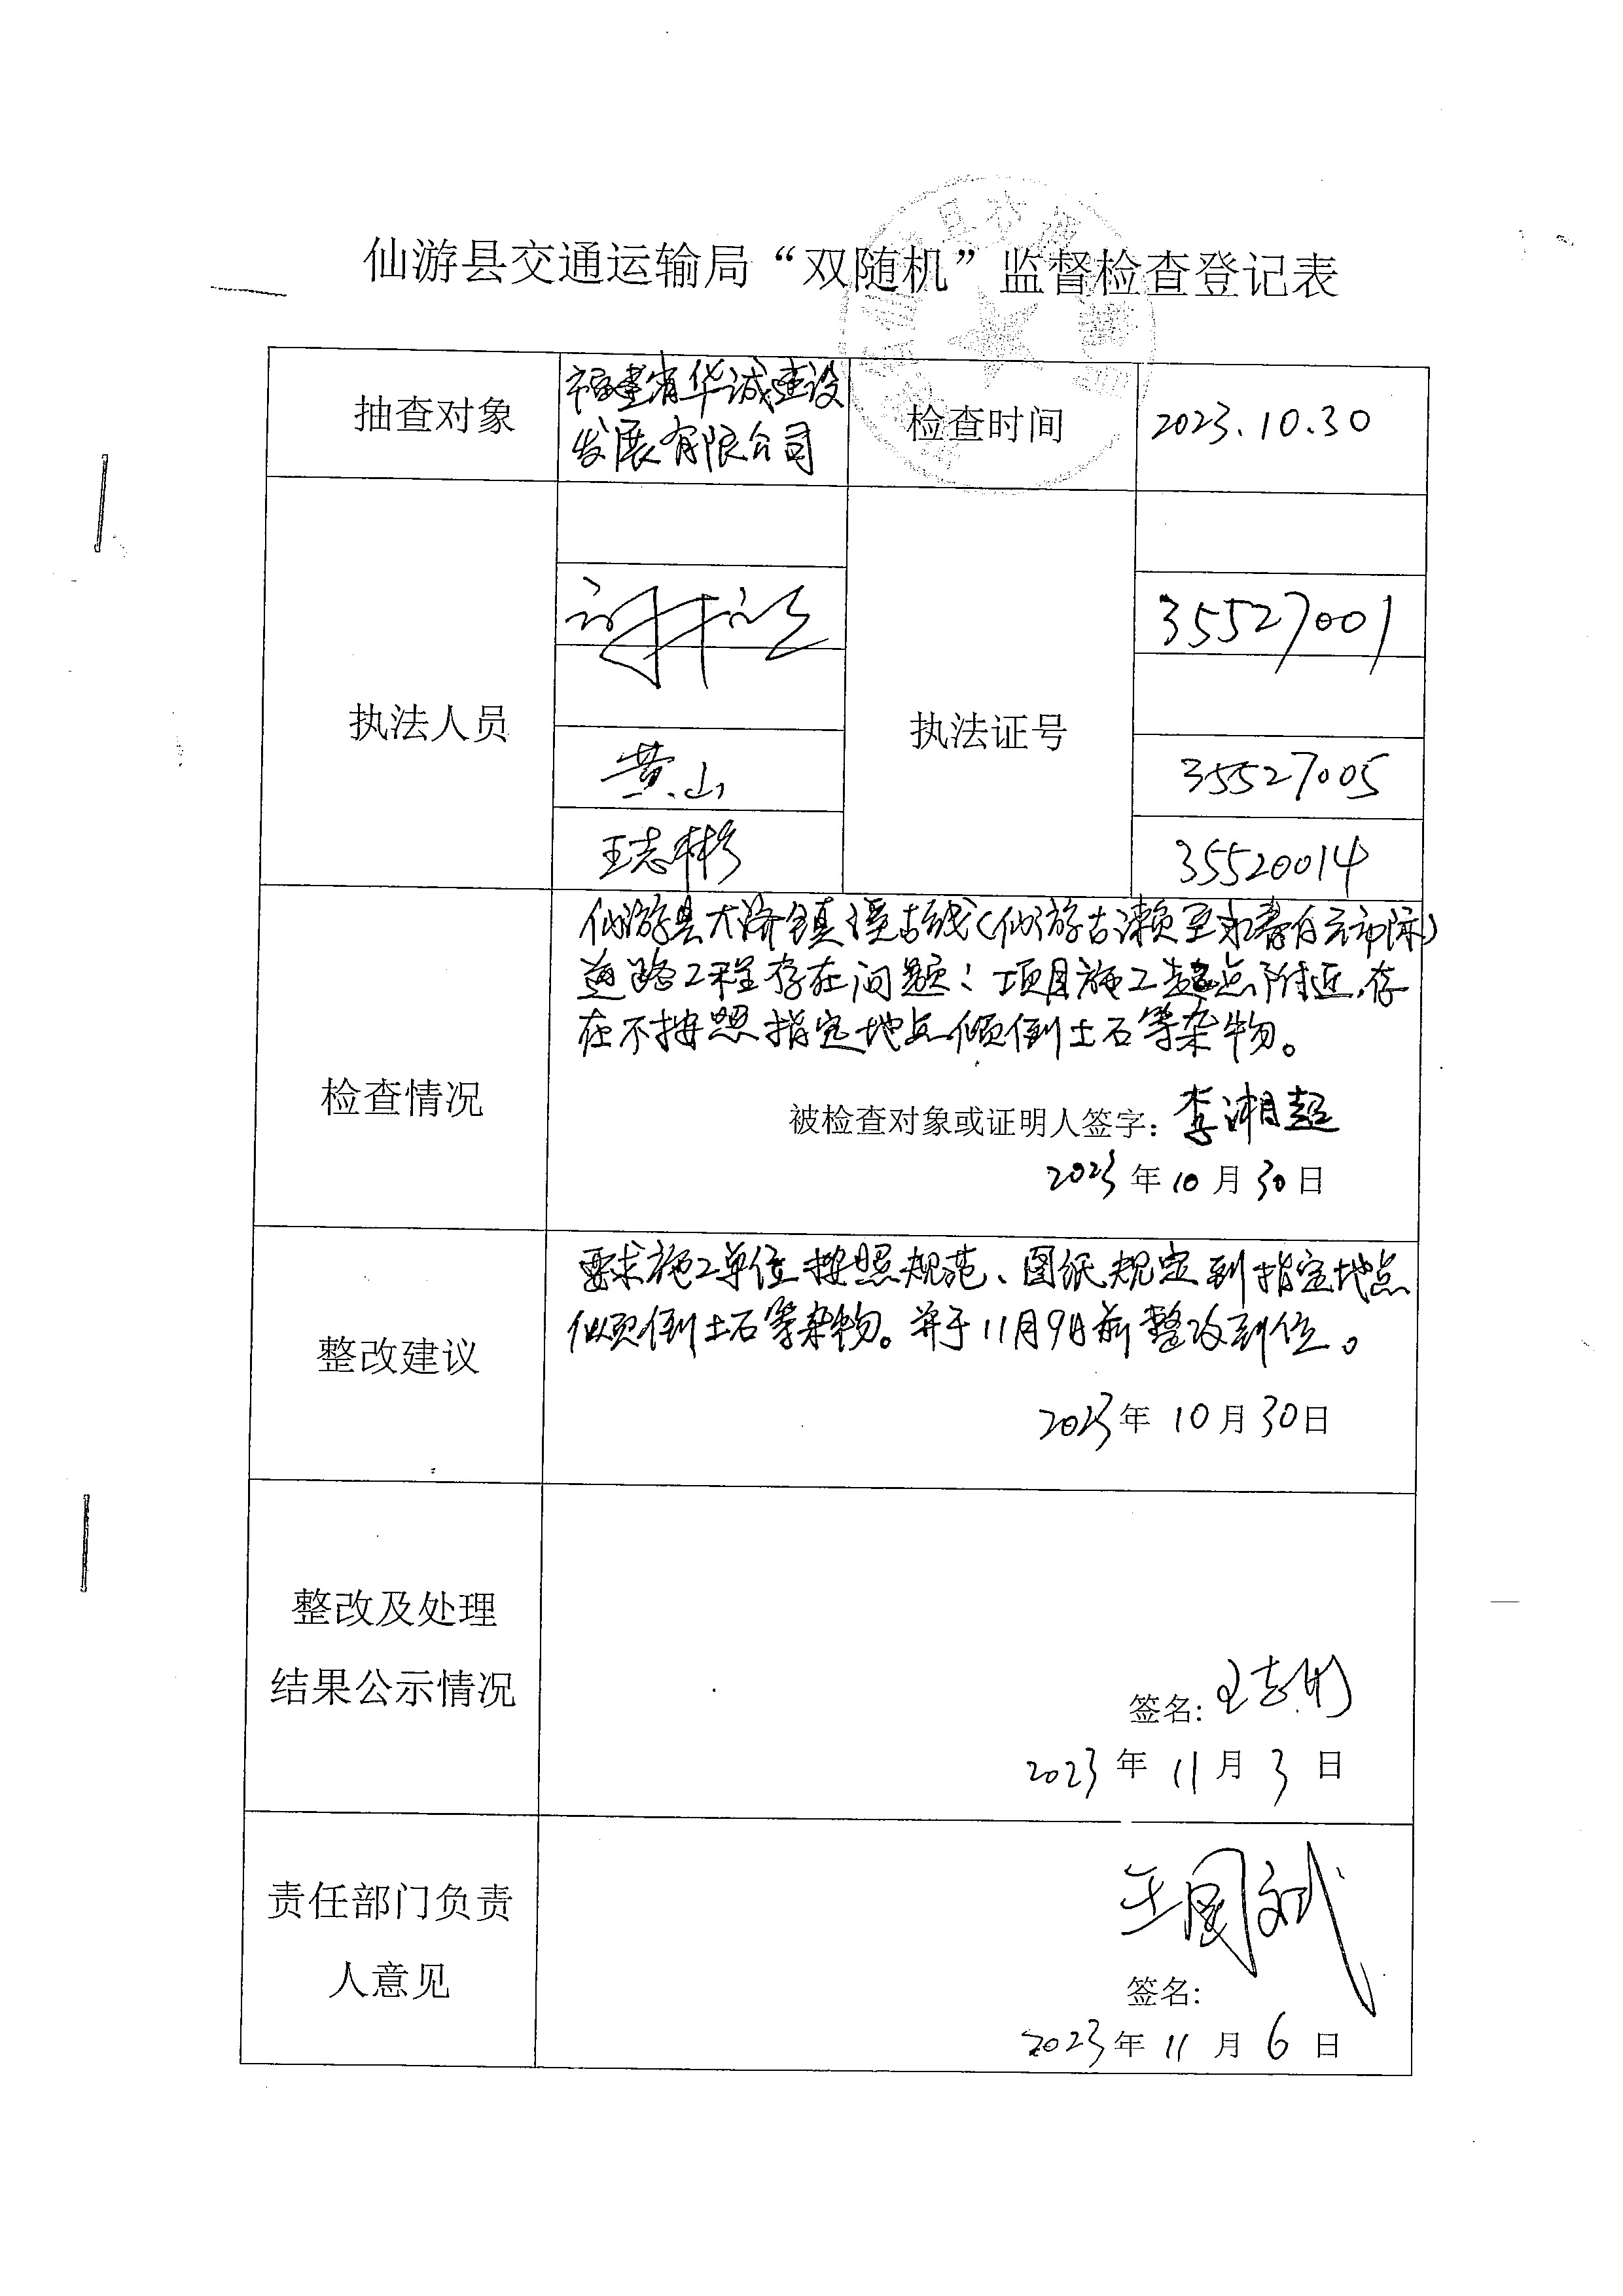 仙游县交通运输局“双随机”监督检查登记表
抽查对象
福建省华诚建设
发展有限公司
检查时间
2023.10.30
执法人员
执法证号
35527001
黄山
35527005
王志彬
35520014
检查情况
仙游县大济镇溪古线(仙游古濑至永春白云市际)
道路工程存在问题：项目施工起点附近,存
在不按照指定地点倾倒土石等杂物。
被检查对象或证明人签字：李湘超
2023年10月30日
整改建议
要求施工单位按照规范、图纸规定到指定地点
倾倒土石等杂物。并于11月9日前整改到位。
2023年10月30日
整改及处理
结果公示情况
签名：王志彬
2023年11月3日
责任部门负责
人意见
王国斌
签名：
2023年11月6日